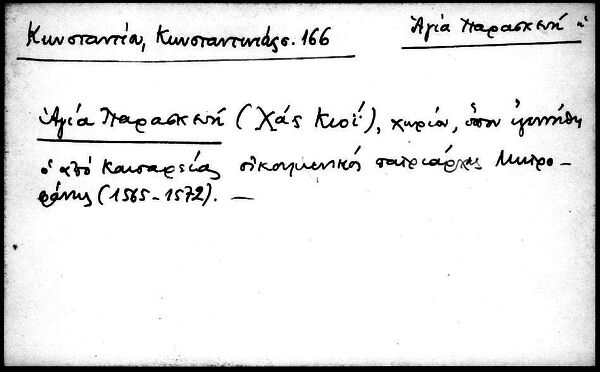 Κωνσταντίου, Κωνσταντινιάς. 166
Ἁγία Παρασκευή
Ἁγία Παρασκευή (Χάς Κιοΐ), χωρίον, ὅπου ἐγεννήθη
ὁ ἀπό Καισαρείας οἰκουμενικός πατριάρχης Μητρο-
φάνης (1565-1572). —